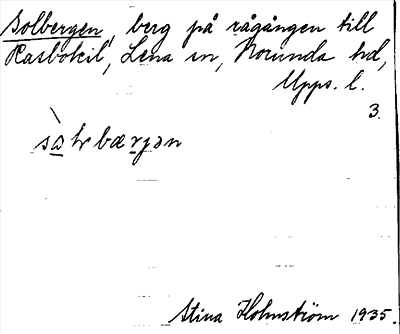 Solbergen, berg på rågången till
Rasbokil, Lena sn, Norunda hd,
Upps. l.
3.
Stina Holmström 1935.